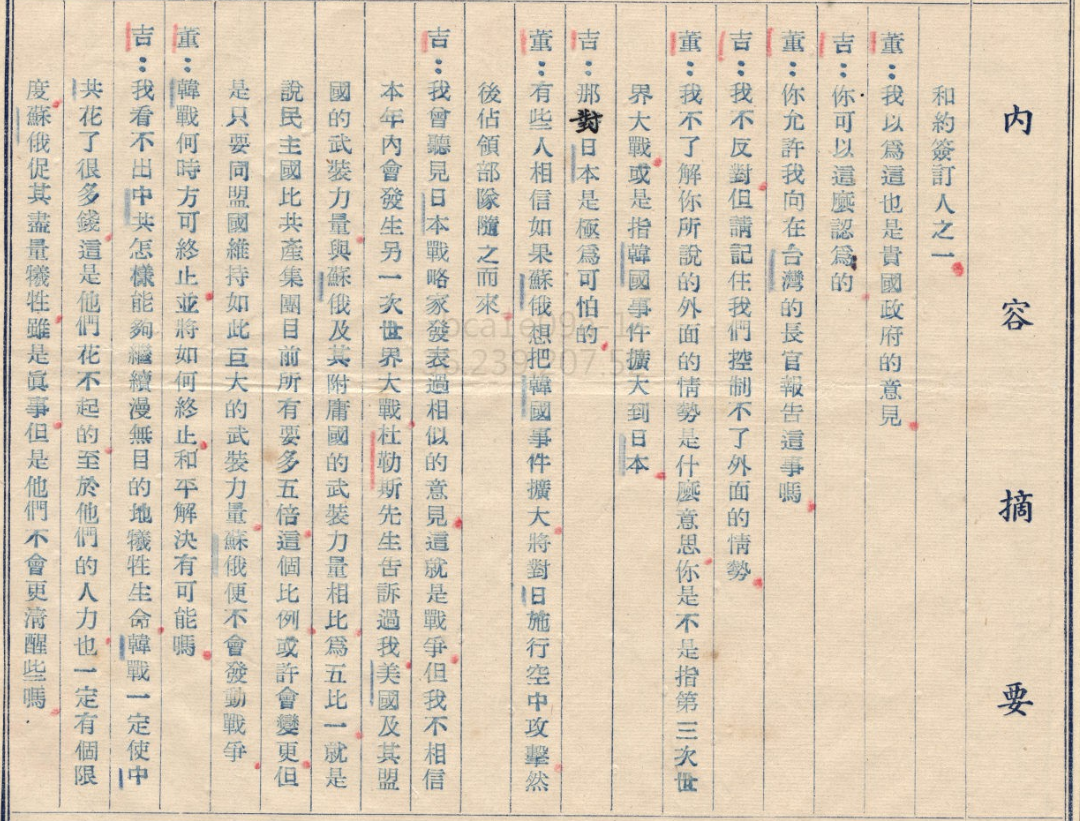 內容摘要
和約簽訂人之一
董：我以爲這也是貴國政府的意見
吉：你可以這麼認爲的
董：你允許我向在台灣的長官報告這事嗎
吉：我不反對但請記住我們控制不了外面的情勢
董：我不了解你所說的外面的情勢是什麼意思你是不是指第三次世
界大戰或是指韓國事件擴大到日本
吉：那對日本是極爲可怕的
董：有些人相信如果蘇俄想把韓國事件擴大將對日施行空中攻擊然
後佔領部隊隨之而來
吉：我曾聽見日本戰略家發表過相似的意見這就是戰爭但我不相信
本年內會發生另一次世界大戰杜勒斯先生告訴過我美國及其盟
國的武裝力量與蘇俄及其附庸國的武裝力量相比爲五比一就是
說民主國比共產集團目前所有要多五倍這個比例或許會變更但
是只要同盟國維持如此巨大的武裝力量蘇俄便不會發動戰爭
董：韓戰何時方可終止並將如何終止和平解決有可能嗎
吉：我看不出中共怎樣能夠繼續漫無目的地犧牲生命韓戰一定使中
共花了很多錢這是他們花不起的至於他們的人力也一定有個限
度蘇俄促其盡量犧牲雖是眞事但是他們不會更清醒些嗎